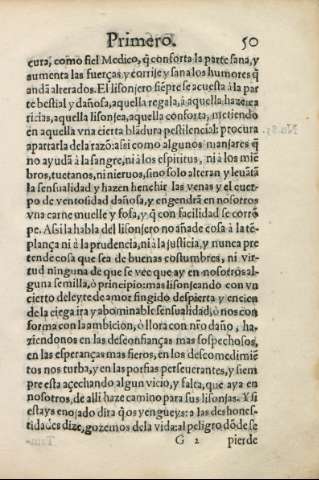 Primero. 50
cura, como fiel Medico, q̃ conforta la parte sana, y
aumenta las fuerças y corrije y sana los humores q̃
andã alterados. El lisonjero siẽpre se acuesta à la par
te bestial y dañosa, aquella regala, à aquella haze ca
ricias, aquella lisonjea, aquella conforta, metiendo
en aquella vna cierta blãdura pestilencial: procura
apartarla dela razõ: assi como algunos manjares q̃
no ayudã à la sangre, ni à los espiritus, ni à los mie
bros, tuetanos, ni nieruos, sino solo alteran y leuãtã
la sensualidad y hazen henchir las venas y el cuer-
po de ventosidad dañosa, y engendrã en nosotros
vna carne muelle y fofa, y q̃ con facilidad se corrõ
pe. Assi la habla del lisonjero no añade cosa à la tẽ
plança ni à la prudencia, ni à la justicia, y nunca pre
tende cosa que sea de buenas costumbres, ni vir-
tud ninguna de que se vee que ay en nosotros al-
guna semilla, ò principio: mas lisonjeando con vn
cierto deleyte de amor fingido despierta y encien
de la ciega ira y abominable sensualidad, ò nos con
forma con la ambicion, ò llora con nr̃o daño, ha-
ziendonos en las desconfianças mas sospechosos,
en las esperanças mas fieros, en los descomedimiẽ
tos nos turba, y en las porfias perseuerantes, y siem
pre esta açechando algun vicio, y falta, que aya en
nosotros, de alli haze camino para sus lisonjas. Y si
estays enojado dira q̃ os vengueys: a las deshones-
tidades dize, gozemos de la vida: al peligro dõde se
G 2 pierde